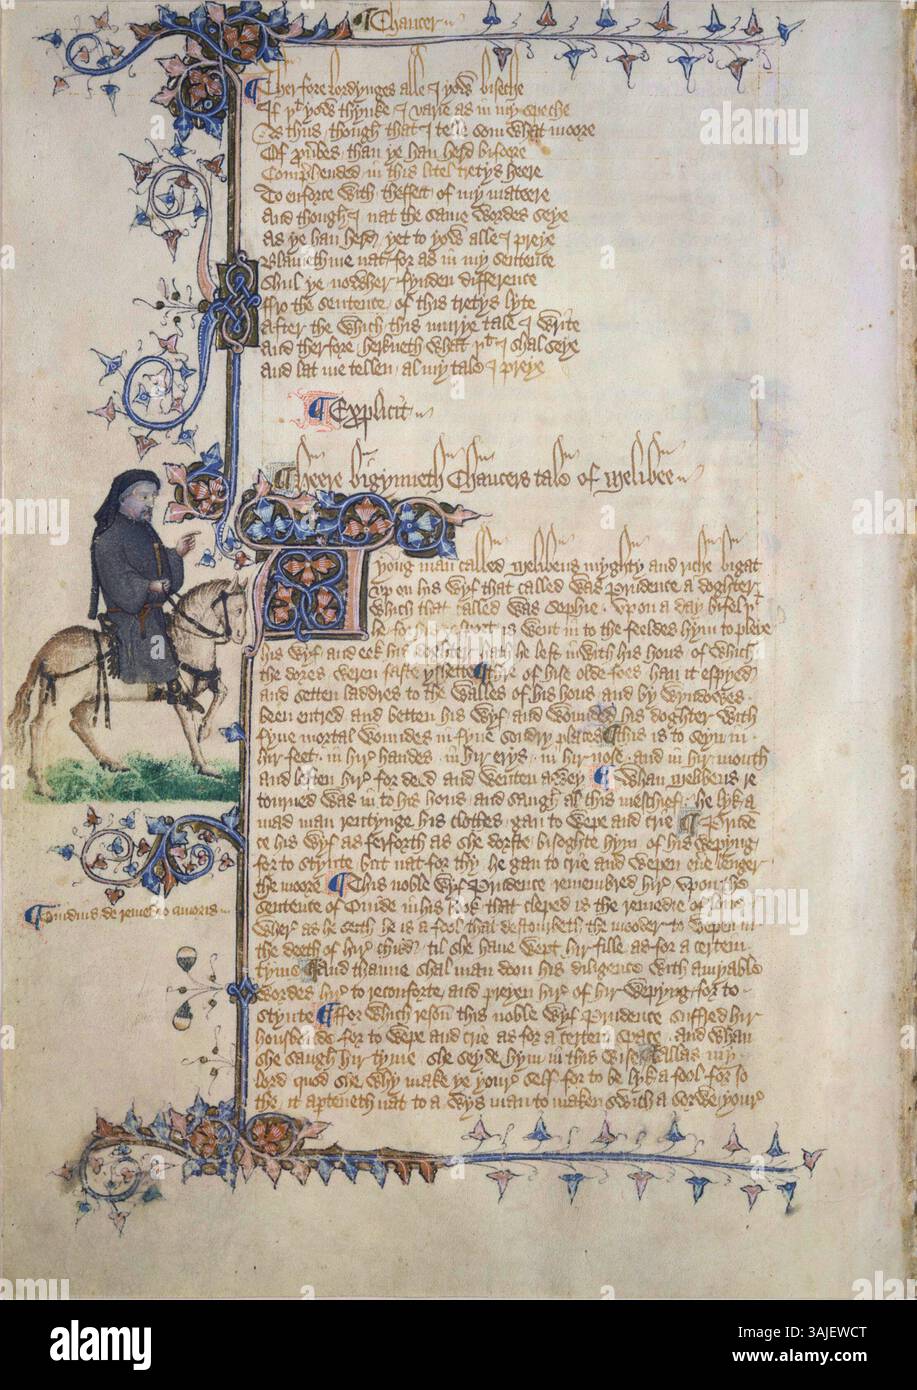 Chaucer
Therfore lordynges alle I yow biseche
If þt yow thynke I varie as in my speche
As thus, though that I telle som what moore
Of prouerbes, than ye han herd bifoore
Comprehended in this litel tretys heere
To enforce with theffect of my mateere
And though I nat the same wordes seye
As ye han herd, yet to yow alle I preye
Blameth me nat, for as in my sentence
Shul ye nowher fynden difference
ffro the sentence of this tretys lyte
After the which this murye tale I write
And therfore herkneth what þt I shal seye
And lat me tellen al my tale I preye
Explicit
Heere bigynneth Chaucers tale of Melibee
A yong man called Melibeus myghty and riche bigat
up on his wyf that called was Prudence a doghter
Which that called was Sophie. Upon a day bifel þt
he for his desport is went in to the feeldes hym to pleye
his wyf and eek his doghter hath he left in with his hous of which
the dores weren faste yshette. Thre of hise olde foes han it espyed
and setten laddres to the walles of his hous and by wyndowes
been entred and betten his wyf and wounded his doghter with
fyue mortal woundes in fyue sondry places This is to seyn in
hir feet, in hir handes, in hir erys, in hir nose, and in hir mouth
and leften hir for deed and wenten awey Whan Melibeus re
tourned was in to his hous and saugh al this meschief, he lyk a
mad man rentynge his clothes gan to wepe and crie Pruden
ce his wyf as ferforth as she dorste bisoghte hym of his wepyng
for to stynte but nat for thy he gan to crie and wepen euer lenger
the moore This noble wyf Prudence remembred hire upon the
sentence of Ouide in his book that cleped is the remedie of loue
Wher as he seith he is a fool that destourbeth the mooder to wepen in
the deeth of hir child, til she haue wept hir fille as for a certein
tyme And thanne shal man doon his diligence with amyable
wordes hire to reconforte, and preyen hire of hir wepyng for to
stynte ffor which reson this noble wyf Prudence suffred hir
housbonde for to wepe and crie as for a certein space, and whan
she saugh hir tyme she seyde hym in this wise Allas my
lord quod she why make ye your self for to be lyk a fool for so
the it aperteneth nat to a wys man to maken swich a sorwe your
Ouidius de remedio amoris
alamy
3AJEWCT
alamy
Image ID: 3AJEWCT
www.alamy.com